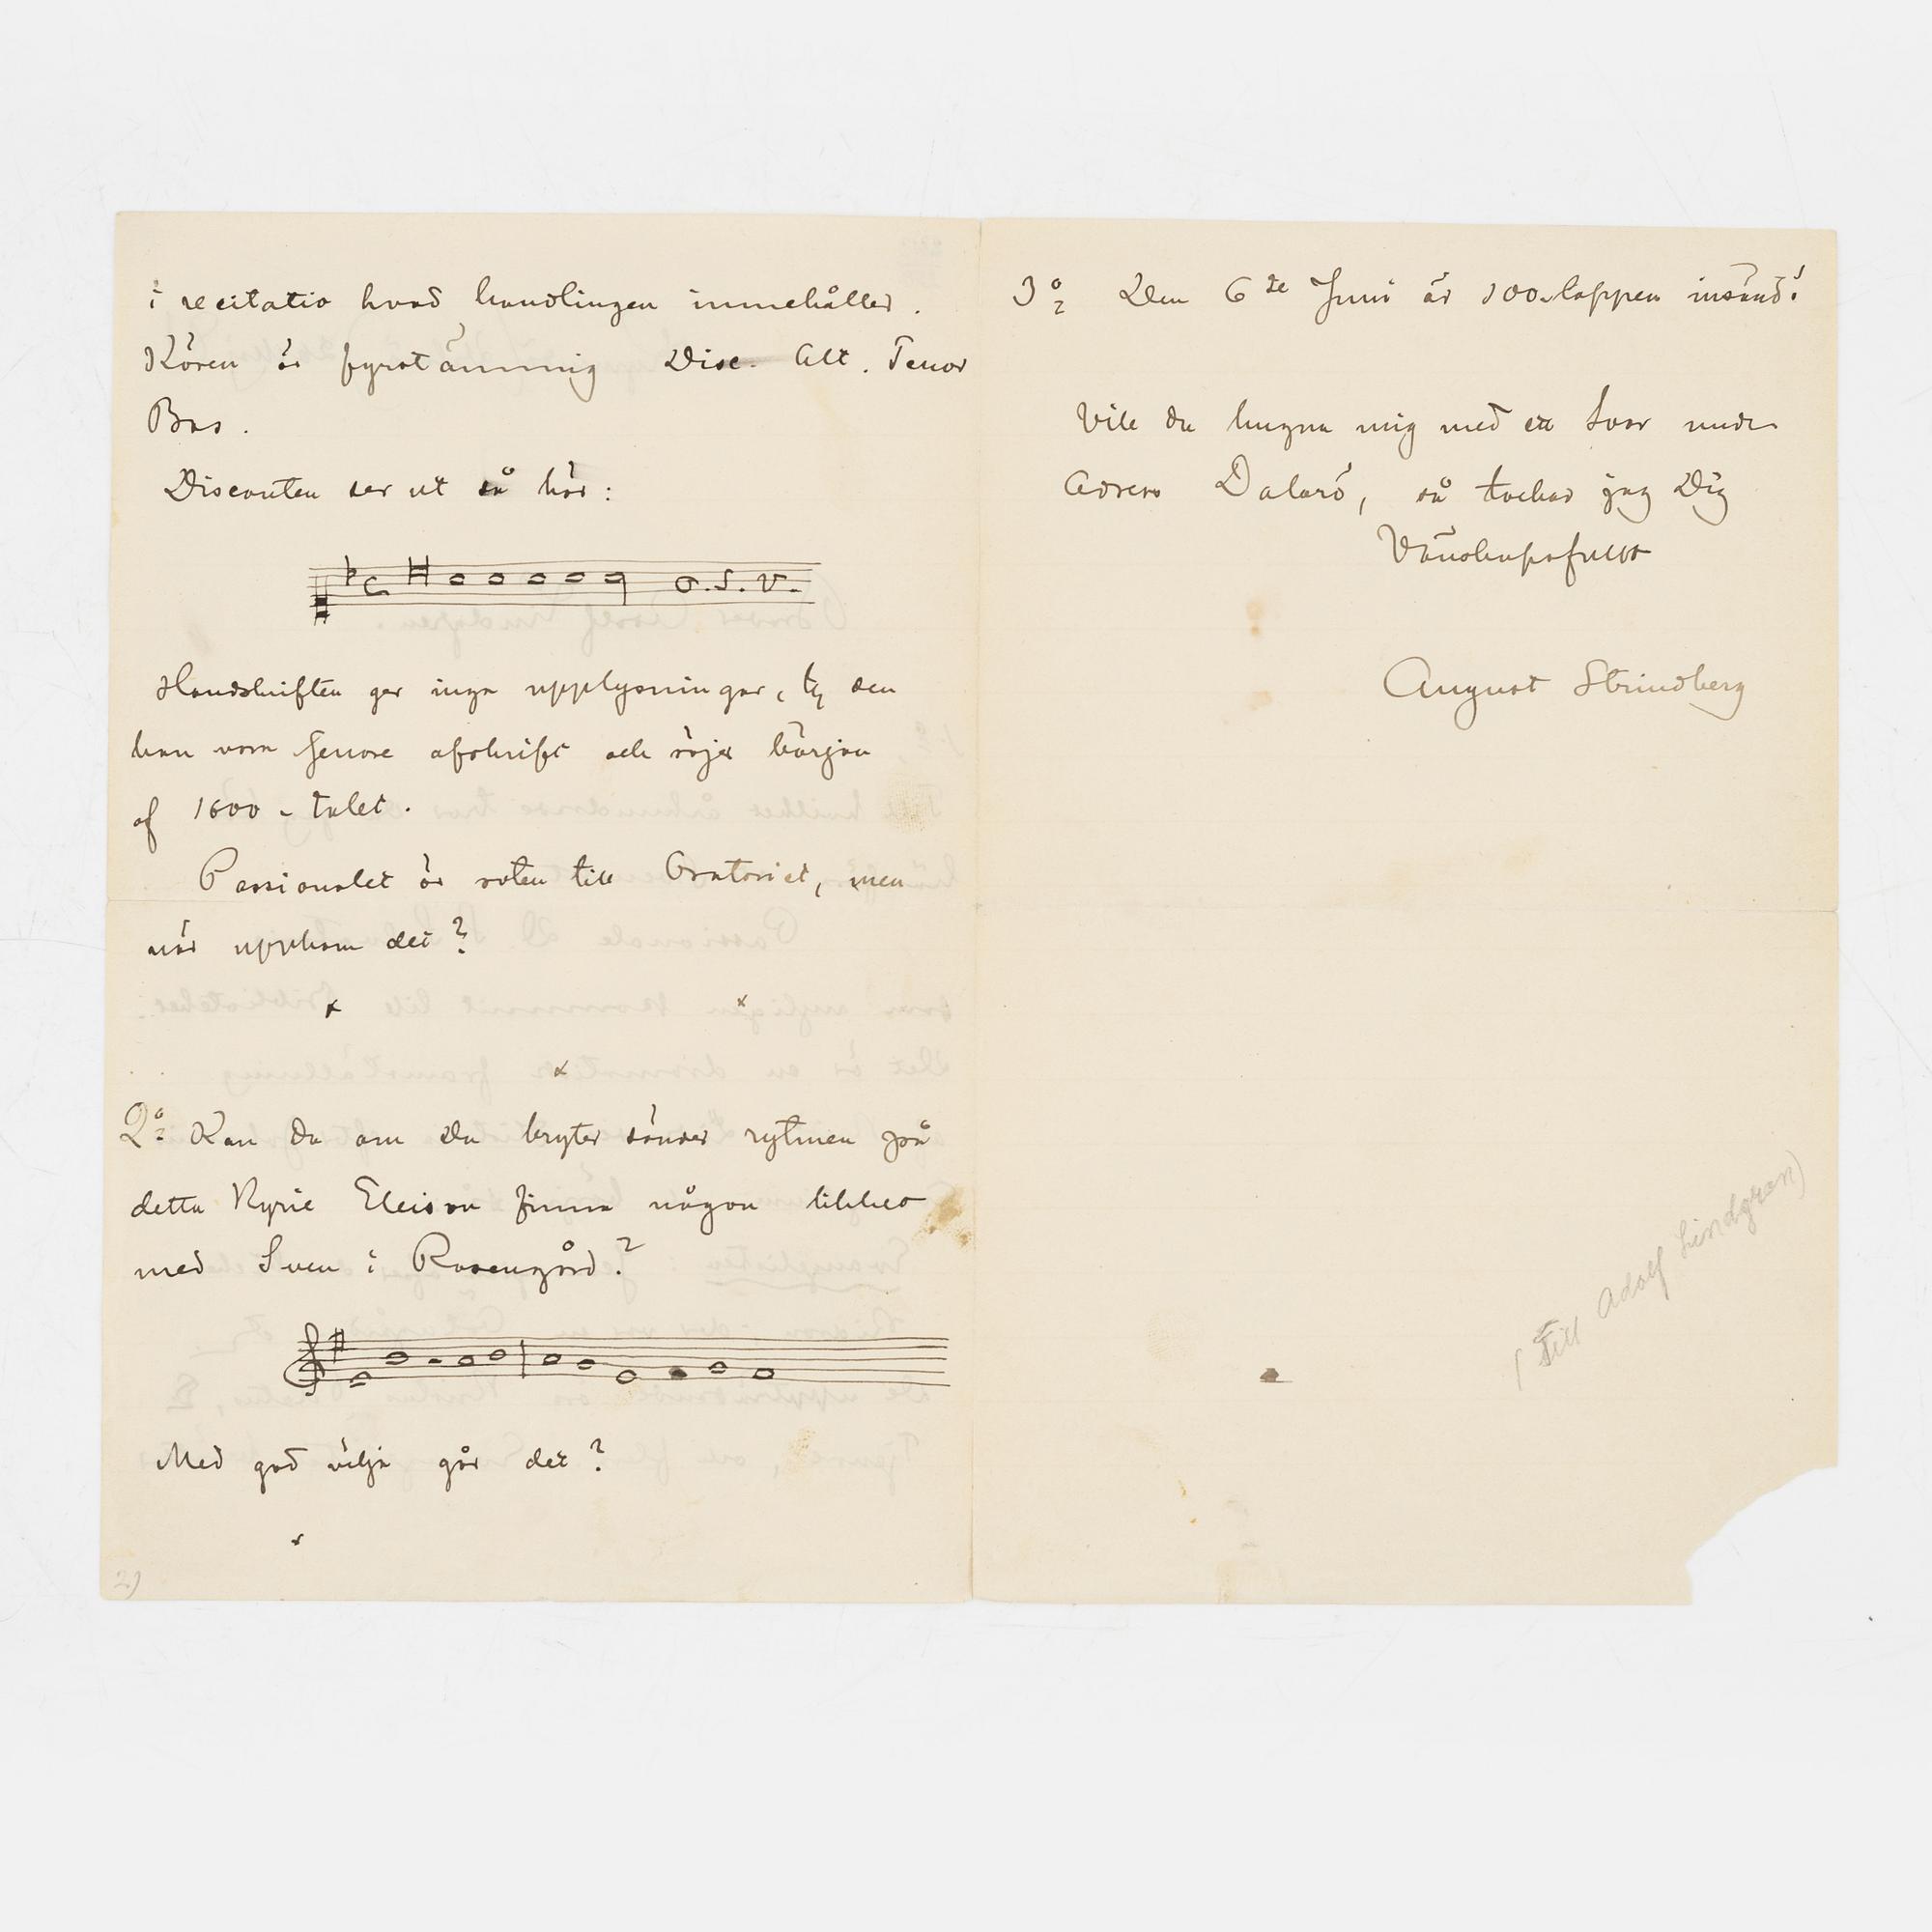 i recitativ hvad handlingen innehåller.
Kören är fyrstämmig Disc. Alt. Tenor
Bas.
Discanten ser ut så här:
o.s.v.
Handskriften ger inga upplysningar, ty den
kan vara senare afskrift och röjer början
af 1600-talet.
Passionalet är roten till Oratoriet, men
när uppkom det?
x x
x
2º Kan du om Du bryter sönder rytmen på
detta Kyrie Eleison finna någon likhet
med Sven i Rosengård?
Med god vilja går det?
x
2)
3º Den 6te Juni är 100-lappen insänd!
Vill du hugna mig med ett svar under
Adress Dalarö, så tackar jag Dig
Vänskapsfullt
August Strindberg
(Till Adolf Lindgren)